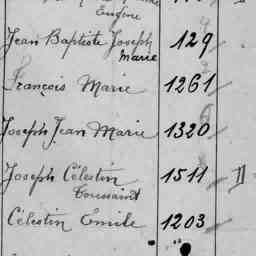 Eugène
Jean Baptiste Joseph 129
Marie
François Marie 1261
Joseph Jean Marie 1320
Joseph Célestin 1511 II
Toussaint
Célestin Emile 1203